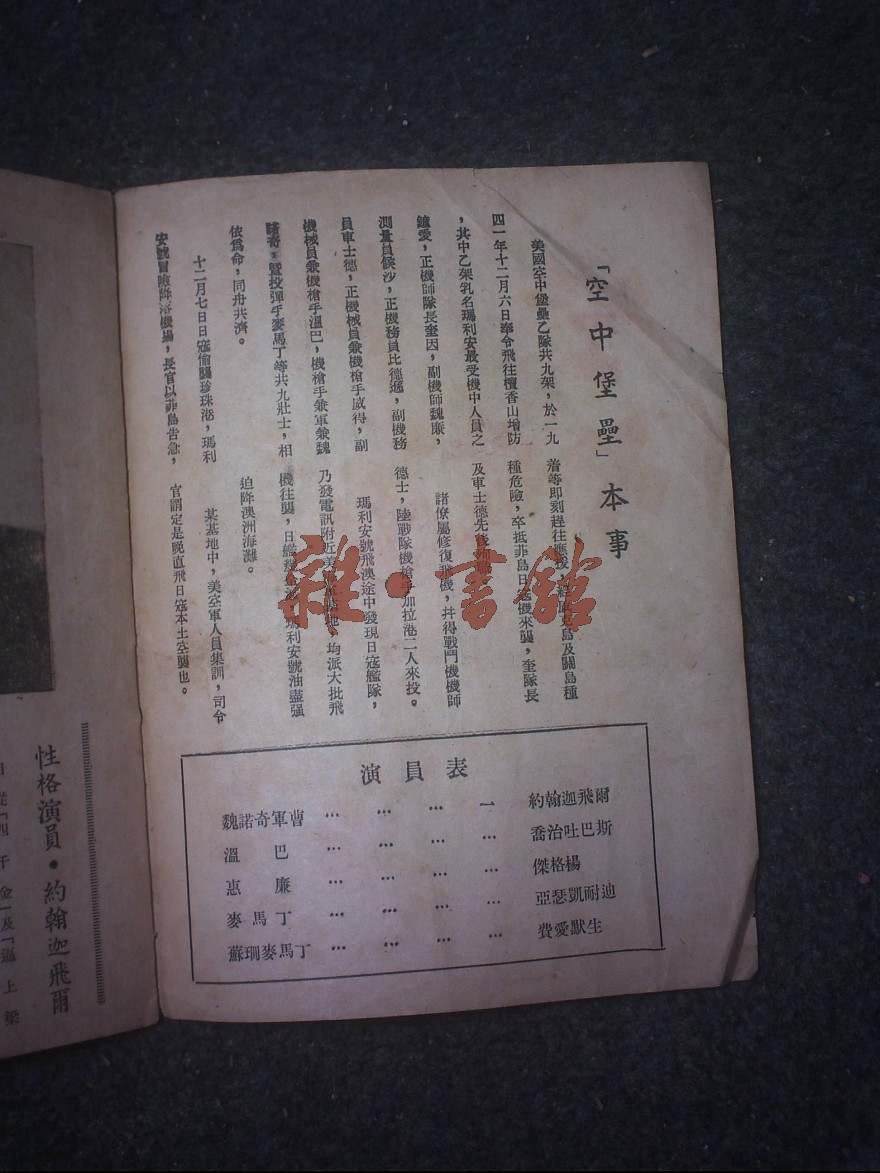 「空中堡壘」本事
美國空中堡壘乙隊共九架，於一九
四一年十二月六日奉令飛往檀香山增防
，其中乙架乳名瑪利安最受機中人員之
鐘愛，正機師隊長奎因，副機師魏廉，
測量員候沙，正機務員比德遜，副機務
員車士德，正機械員兼機槍手威得，副
機械員兼機槍手溫巴，機槍手兼軍兼魏
諾奇，暨投彈手麥馬丁等共九壯士，相
依爲命，同舟共濟。
十二月七日日寇偷襲珍珠港，瑪利
安號冒險降落機場，長官以菲島告急，
着等即刻趕往應援，島及關島種
種危險，卒抵菲島日寇機來襲，奎隊長
及車士德先後
諸僚屬修復飛機，幷得戰鬥機機師
德士，陸戰隊機槍手加拉港二人來投。
瑪利安號飛澳途中發現日寇艦隊，
乃發電訊附近美，均派大批飛
機往襲，日艦，瑪利安號油盡强
迫降澳洲海灘。
某基地中，美空軍人員集訓，司令
官謂定是晚直飛日寇本土空襲也。
演員表
魏諾奇軍曹 … … … 一 約翰迦飛爾
溫巴 … … … … 喬治吐巴斯
惠廉 … … … … 傑格楊
麥馬丁 … … … … 亞瑟凱耐迪
蘇珊麥馬丁 … … … … 費愛默生
性格演員・約翰迦飛爾
「四千金」及「逼上梁
雜・書館